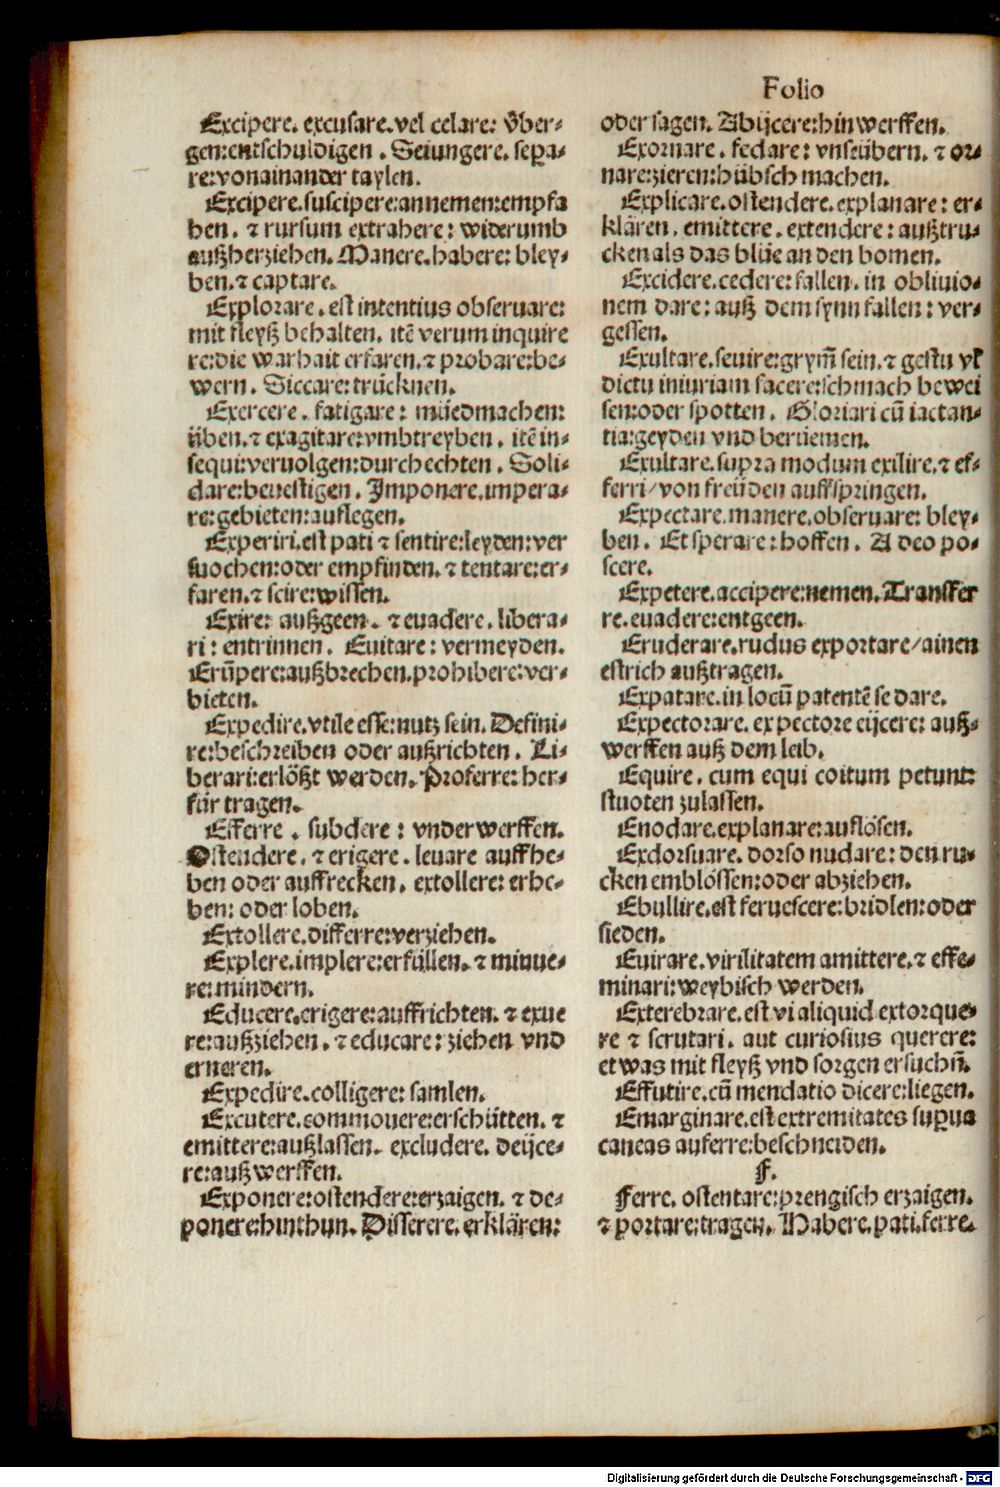 Folio
Excipere. excusare. vel celare: v̈ber⸗
gen:entschuldigen. Seiungere. sepa⸗
re:vonainander taylen.
Excipere.suscipere:annemen:empfa
hen. ⁊ rursum extrahere: widerumb
außherziehen. Manere.habere: bley⸗
ben.⁊ captare.
Explorare. est intentius obseruare:
mit fleyß behalten. itē verum inquire
re:die warhait erfaren.⁊ probare:be⸗
wern. Siccare:trücknen.
Exercere. fatigare: müedmachen:
üben.⁊ exagitare:vmbtreyben. itē in⸗
sequi:veruolgen:durchechten. Soli⸗
dare:beuestigen. Imponere.impera⸗
re:gebieten:auflegen.
Experiri.est pati ⁊ sentire:leyden:ver
suochen:oder empfinden.⁊ tentare:er⸗
faren.⁊ scire:wissen.
Exire: außgeen. ⁊ euadere. libera⸗
ri: entrinnen. Euitare: vermeyden.
Erūpere:außbrechen.prohibere:ver⸗
bieten.
Expedire.vtile esse:nutz sein. Defini⸗
re:beschreiben oder außrichten. Li⸗
berari:erlößt werden. Proferre: her⸗
für tragen.
Efferre. subdere: vnderwerffen.
Ostendere. ⁊ erigere. leuare auffhe⸗
ben oder auffrecken. extollere: erhe⸗
ben: oder loben.
Extollere.differre:verziehen.
Explere.implere:erfüllen.⁊ minue⸗
re:mindern.
Educere.erigere:auffrichten.⁊ exue
re:außziehen.⁊ educare: ziehen vnd
erneren.
Expedire.colligere: samlen.
Excutere.commouere:erschütten. ⁊
emittere:außlassen. excludere. deijce⸗
re:außwerffen.
Exponere:ostendere:erzaigen. ⁊ de⸗
ponere:hinthun. Disserere. erklären:
oder sagen. Abijcere:hinwerffen.
Exornare. fedare: vnseübern. ⁊ or⸗
nare:zieren:hübsch machen.
Explicare.ostendere.explanare: er⸗
klären. emittere. extendere: außtru⸗
cken als das blüe an den bomen.
Excidere.cedere:fallen. in obliuio⸗
nem dare: auß dem synn fallen: ver⸗
gessen.
Exultare.seuire:grym̄ sein.⁊ gestu vl̓
dictu iniuriam facere:schmach bewei
sen:oder spotten. Gloriari cū iactan⸗
tia:geyden vnd berüemen.
Exultare.supra modum exilire.⁊ ef⸗
ferri/von freüden auffspringen.
Expectare.manere.obseruare: bley⸗
ben. Et sperare: hoffen. A deo po⸗
scere.
Expetere.accipere:nemen.Transfer
re.euadere:entgeen.
Eruderare.rudus exportare/ainen
estrich außtragen.
Expatare.in locū patentē se dare.
Expectorare. ex pectore eijcere: auß⸗
werffen auß dem leib.
Equire. cum equi coitum petunt:
stuoten zulassen.
Enodare.explanare:auflösen.
Exdorsuare. dorso nudare: den ru⸗
cken emblössen:oder abziehen.
Ebullire.est feruescere:bridlen:oder
sieden.
Euirare.virilitatem amittere.⁊ effe⸗
minari:weybisch werden.
Exterebrare.est vi aliquid extorque⸗
re ⁊ scrutari. aut curiosius querere:
etwas mit fleyß vnd sorgen ersuchn̄.
Effutire.cū mendatio dicere:liegen.
Emarginare.est extremitates supua
caneas auferre:beschneiden.
F.
Ferre. ostentare:prengisch erzaigen.
⁊ portare:tragen. Habere.pati.ferre.
Digitalisierung gefördert durch die Deutsche Forschungsgemeinschaft - DFG